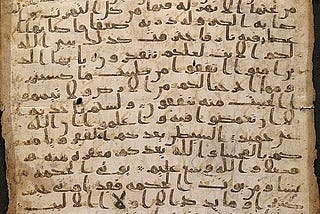 من تحتها الانهر له فيها من كل الثمرت و
اصابه الكبر وله ذرية ضعفا فاصابها
اعصار فيه نار فاحترقت كذلك يبين الله
لكم الايت لعلكم تتفكرون يايها الذ
ين امنوا انفقوا من طيبت ما كسبتم
ومما اخرجنا لكم من الارض ولا تيمموا
الخبيث منه تنفقون ولستم باخذيه
الا ان تغمضوا فيه واعلموا ان الله
غني حميد الشيطن يعدكم الفقر ويامر
كم بالفحشا والله يعدكم مغفرة منه و
فضلا والله وسع عليم يوتي الحكمة من
يشا ومن يوت الحكمة فقد اوتي خير
ا كثيرا وما يذكر الا اولوا الالبب